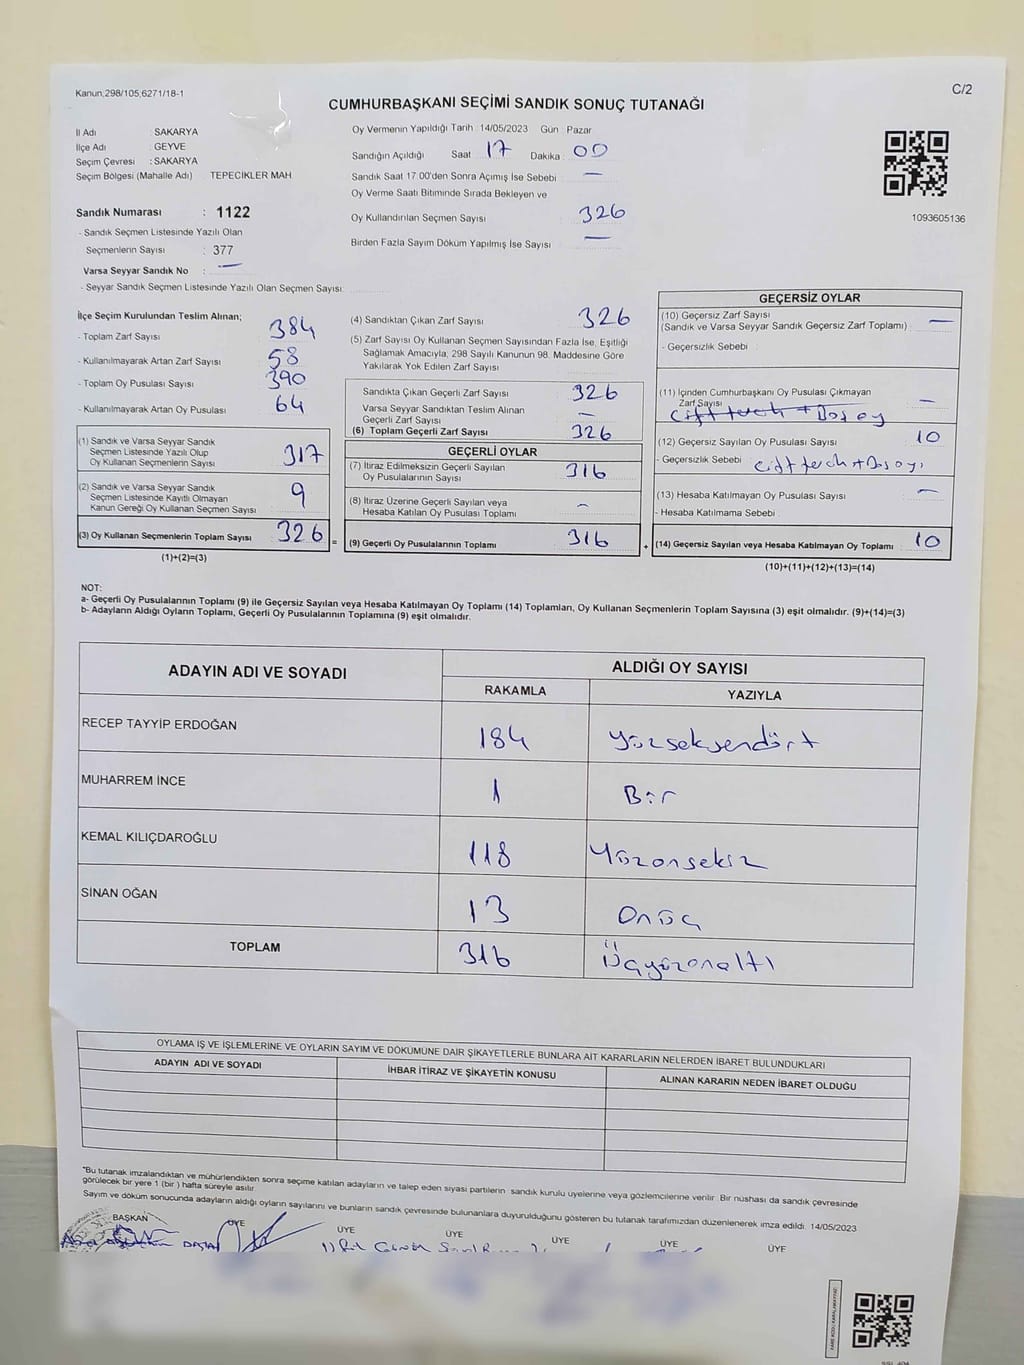 Kanun;298/105,6271/18-1
C/2
CUMHURBAŞKANI SEÇİMİ SANDIK SONUÇ TUTANAĞI
İl Adı : SAKARYA
İlçe Adı : GEYVE
Seçim Çevresi : SAKARYA
Seçim Bölgesi (Mahalle Adı) TEPECİKLER MAH
Sandık Numarası : 1122
- Sandık Seçmen Listesinde Yazılı Olan
Seçmenlerin Sayısı : 377
Varsa Seyyar Sandık No : —
- Seyyar Sandık Seçmen Listesinde Yazılı Olan Seçmen Sayısı:
Oy Vermenin Yapıldığı Tarih :14/05/2023 Gün : Pazar
Sandığın Açıldığı Saat : 17 Dakika : 00
Sandık Saat 17.00'den Sonra Açımış İse Sebebi : —
Oy Verme Saati Bitiminde Sırada Bekleyen ve
Oy Kullandırılan Seçmen Sayısı : 326
Birden Fazla Sayım Döküm Yapılmış İse Sayısı : —
1093605136
İlçe Seçim Kurulundan Teslim Alınan;
- Toplam Zarf Sayısı : 384
- Kullanılmayarak Artan Zarf Sayısı : 58
- Toplam Oy Pusulası Sayısı : 390
- Kullanılmayarak Artan Oy Pusulası : 64
(1) Sandık ve Varsa Seyyar Sandık
Seçmen Listesinde Yazılı Olup
Oy Kullanan Seçmenlerin Sayısı : 317
(2) Sandık ve Varsa Seyyar Sandık
Seçmen Listesinde Kayıtlı Olmayan
Kanun Gereği Oy Kullanan Seçmen Sayısı : 9
(3) Oy Kullanan Seçmenlerin Toplam Sayısı : 326
(1)+(2)=(3)
(4) Sandıktan Çıkan Zarf Sayısı : 326
(5) Zarf Sayısı Oy Kullanan Seçmen Sayısından Fazla İse, Eşitliği
Sağlamak Amacıyla, 298 Sayılı Kanunun 98. Maddesine Göre
Yakılarak Yok Edilen Zarf Sayısı :
Sandıkta Çıkan Geçerli Zarf Sayısı : 326
Varsa Seyyar Sandıktan Teslim Alınan
Geçerli Zarf Sayısı : —
(6) Toplam Geçerli Zarf Sayısı : 326
GEÇERLİ OYLAR
(7) İtiraz Edilmeksizin Geçerli Sayılan
Oy Pusulalarının Sayısı : 316
(8) İtiraz Üzerine Geçerli Sayılan veya
Hesaba Katılan Oy Pusulası Toplamı : —
= (9) Geçerli Oy Pusulalarının Toplamı : 316
GEÇERSİZ OYLAR
(10) Geçersiz Zarf Sayısı
(Sandık ve Varsa Seyyar Sandık Geçersiz Zarf Toplamı) : —
- Geçersizlik Sebebi :
(11) İçinden Cumhurbaşkanı Oy Pusulası Çıkmayan
Zarf Sayısı : —
(12) Geçersiz Sayılan Oy Pusulası Sayısı : 10
- Geçersizlik Sebebi :
(13) Hesaba Katılmayan Oy Pusulası Sayısı : —
- Hesaba Katılmama Sebebi :
+ (14) Geçersiz Sayılan veya Hesaba Katılmayan Oy Toplamı : 10
(10)+(11)+(12)+(13)=(14)
NOT:
a- Geçerli Oy Pusulalarının Toplamı (9) ile Geçersiz Sayılan veya Hesaba Katılmayan Oy Toplamı (14) Toplamları, Oy Kullanan Seçmenlerin Toplam Sayısına (3) eşit olmalıdır. (9)+(14)=(3)
b- Adayların Aldığı Oyların Toplamı, Geçerli Oy Pusulalarının Toplamına (9) eşit olmalıdır.
ADAYIN ADI VE SOYADI
ALDIĞI OY SAYISI
RAKAMLA YAZIYLA
RECEP TAYYİP ERDOĞAN 184 Yüzseksendört
MUHARREM İNCE 1 Bir
KEMAL KILIÇDAROĞLU 118 Yüzonsekiz
SİNAN OĞAN 13 Onüç
TOPLAM 316 Üçyüzonaltı
OYLAMA İŞ VE İŞLEMLERİNE VE OYLARIN SAYIM VE DÖKÜMÜNE DAİR ŞİKAYETLERLE BUNLARA AİT KARARLARIN NELERDEN İBARET BULUNDUKLARI
ADAYIN ADI VE SOYADI İHBAR İTİRAZ VE ŞİKAYETİN KONUSU ALINAN KARARIN NEDEN İBARET OLDUĞU
"Bu tutanak imzalandıktan ve mühürlendikten sonra seçime katılan adayların ve talep eden siyasi partilerin sandık kurulu üyelerine veya gözlemcilerine verilir. Bir nüshası da sandık çevresinde
görülecek bir yere 1 (bir ) hafta süreyle asılır.
Sayım ve döküm sonucunda adayların aldığı oyların sayılarını ve bunların sandık çevresinde bulunanlara duyurulduğunu gösteren bu tutanak tarafımızdan düzenlenerek imza edildi. 14/05/2023
BAŞKAN ÜYE ÜYE ÜYE ÜYE ÜYE ÜYE